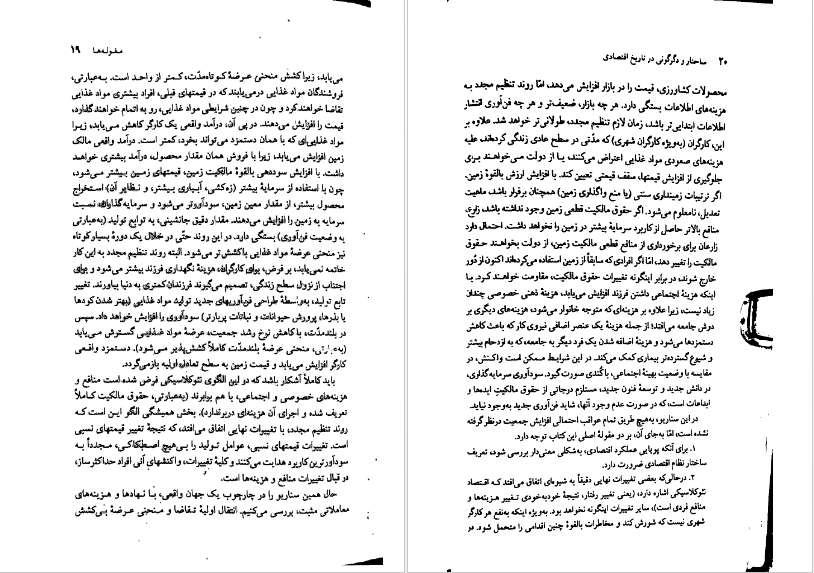 مقوله‌ها   ۱۹
می‌یابد، زیرا کشش منحنی عرضهٔ کوتاه‌مدّت، کمتر از واحد است. به‌عبارتی،
فروشندگان مواد غذایی درمی‌یابند که در قیمتهای قبلی، افراد بیشتری مواد غذایی
تقاضا خواهند کرد و چون در چنین شرایطی مواد غذایی، رو به اتمام خواهند گذارد،
قیمت را افزایش می‌دهند. در پی آن، درآمد واقعی یک کارگر کاهش می‌یابد، زیرا
مواد غذایی‌ای که با همان دستمزد می‌تواند بخرد، کمتر است. درآمد واقعی مالک
زمین افزایش می‌یابد، زیرا با فروش همان مقدار محصول، درآمد بیشتری خواهد
داشت. با افزایش سوددهی بالقوهٔ مالکیت زمین، قیمتهای زمین بیشتر می‌شود،
چون با استفاده از سرمایهٔ بیشتر (زه‌کشی، آبیاری بیشتر، و نظایر آن) استخراج
محصول بیشتر، از مقدار معین زمین، سودآورتر می‌شود و سرمایه‌گذاران، نسبت
سرمایه به زمین را افزایش می‌دهند. مقدار دقیق جانشینی، به توابع تولید (به‌عبارتی
به وضعیت فن‌آوری) بستگی دارد. در این روند حتّی در خلال یک دورهٔ بسیار کوتاه
نیز منحنی عرضهٔ مواد غذایی باکشش‌تر می‌شود. البته روند تنظیم مجدد به این کار
خاتمه نمی‌یابد، بر فرض، برای کارگران، هزینهٔ نگهداری فرزند بیشتر می‌شود و برای
اجتناب از نزول سطح زندگی، تصمیم می‌گیرند فرزندان کمتری به دنیا بیاورند. تغییر
تابع تولید، به‌وسیلهٔ طراحی فن‌آوریهای جدید تولید مواد غذایی (بهتر شدن کودها
یا بذرها، پرورش حیوانات و نباتات پربارتر) سودآوری را افزایش خواهد داد. سپس
در بلندمدت، با کاهش نوخ رشد جمعیت، عرضهٔ مواد غذایی گسترش می‌یابد
(به‌عبارتی، منحنی عرضهٔ بلندمدّت کاملاً کشش‌پذیر می‌شود). دستمزد واقعی
کارگر افزایش می‌یابد و قیمت زمین به سطح تعادلی اولیه بازمی‌گردد.
باید کاملاً آشکار باشد که در این الگوی نئوکلاسیکی فرض شده است منافع و
هزینه‌های خصوصی و اجتماعی، با هم برابرند (به‌عبارتی، حقوق مالکیت کاملاً
تعریف شده و اجرای آن هزینه‌ای دربرندارد). بخش همیشگی الگو این است که
روند تنظیم مجدد، با تغییرات نهایی اتفاق می‌افتد، که نتیجهٔ تغییر قیمتهای نسبی
است. تغییرات قیمتهای نسبی، عوامل تولید را بی‌هیچ اصطکاکی، مجدداً به
سودآورترین کاربرد هدایت می‌کنند و کلیهٔ تغییرات، واکنشهای آنی افراد حداکثرساز،
در قبال تغییرات منافع و هزینه‌ها است.
حال همین سناریو را در چارچوب یک جهان واقعی، با نهادها و هزینه‌های
معاملاتی مثبت، بررسی می‌کنیم. انتقال اولیهٔ تقاضا و منحنی عرضهٔ بی‌کشش
۲۰   ساختار و دگرگونی در تاریخ اقتصادی
محصولات کشاورزی، قیمت را در بازار افزایش می‌دهد، امّا روند تنظیم مجدد به
هزینه‌های اطلاعات بستگی دارد. هر چه بازار، ضعیف‌تر و هر چه فن‌آوری انتشار
اطلاعات ابتدایی‌تر باشد، زمان لازم تنظیم مجدد، طولانی‌تر خواهد شد. علاوه بر
این، کارگران (به‌ویژه کارگران شهری) که مدّتی در سطح عادی زندگی کرده‌اند، علیه
هزینه‌های صعودی مواد غذایی اعتراض می‌کنند، یا از دولت می‌خواهند برای
جلوگیری از افزایش قیمتها، سقف قیمتی تعیین کند. با افزایش ارزش بالقوهٔ زمین،
اگر ترتیبات زمینداری سنتی (یا منع واگذاری زمین) همچنان برقرار باشد، ماهیت
تعدیل، نامعلوم می‌شود. اگر حقوق مالکیت قطعی زمین وجود نداشته باشد، زارع،
منافع بالاتر حاصل از کاربرد سرمایهٔ بیشتر در زمین را نخواهد داشت. احتمال دارد
زارعان برای برخورداری از منافع قطعی مالکیت زمین، از دولت بخواهند حقوق
مالکیت را تغییر دهد، امّا اگر افرادی که سابقاً از زمین استفاده می‌کرده‌اند اکنون از دُور
خارج شوند، در برابر اینگونه تغییرات حقوق مالکیت، مقاومت خواهند کرد. با
اینکه هزینهٔ اجتماعی داشتن فرزند افزایش می‌یابد، هزینهٔ ذهنی خصوصی چندان
زیاد نیست، زیرا علاوه بر هزینه‌ای که متوجه خانوار می‌شود، هزینه‌های دیگری بر
دوش جامعه می‌افتد؛ از جمله هزینهٔ یک عنصر اضافی نیروی کار که باعث کاهش
دستمزدها می‌شود و هزینهٔ اضافه شدن یک فرد دیگر به جامعه، که به ازدحام بیشتر
و شیوع گسترده‌تر بیماری کمک می‌کند. در این شرایط ممکن است واکنش، در
مقایسه با وضعیت بهینهٔ اجتماعی، با کُندی صورت گیرد. سودآوری سرمایه‌گذاری،
در دانش جدید و توسعهٔ فنون جدید، مستلزم درجاتی از حقوق مالکیتِ ایده‌ها و
ابداعات است، که در صورت عدم وجود آنها، شاید فن‌آوری جدید به‌وجود نیاید.
در این سناریو، به‌هیچ طریق تمام عواقب احتمالی افزایش جمعیت در نظر گرفته
نشده است، امّا به‌جای آن، بر دو مقولهٔ اصلی این کتاب توجه دارد.
۱. برای آنکه پویایی عملکرد اقتصادی، به‌شکلی معنی‌دار بررسی شود، تعریف
ساختار نظام اقتصادی ضرورت دارد.
۲. درحالی‌که بعضی تغییرات نهایی دقیقاً به شیوه‌ای اتفاق می‌افتد که اقتصاد
نئوکلاسیکی اشاره دارد، (یعنی تغییر رفتار، نتیجهٔ خودبه‌خودی تغییر هزینه‌ها و
منافع فردی است)، سایر تغییرات اینگونه نخواهد بود. به‌ویژه اینکه به‌نفع هر کارگر
شهری نیست که شورش کند و مخاطرات بالقوهٔ چنین اقدامی را متحمل شود. در